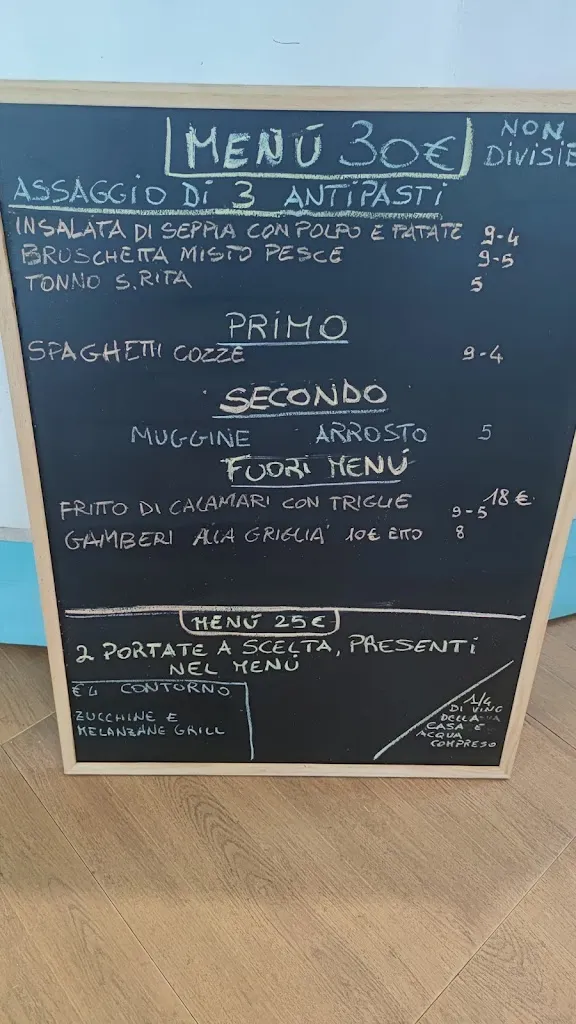 MENÚ 30€
NON
DIVISIB
ASSAGGIO DI 3 ANTIPASTI
INSALATA DI SEPPIA CON POLPO E PATATE 9-4
BRUSCHETTA MISTO PESCE 9-5
TONNO S.RITA 5
PRIMO
SPAGHETTI COZZE 9-4
SECONDO
MUGGINE ARROSTO 5
FUORI MENÚ
FRITTO DI CALAMARI CON TRIGLIE 9-5 18€
GAMBERI ALLA GRIGLIA' 10€ ETTO 8
MENÚ 25€
2 PORTATE A SCELTA, PRESENTI
NEL MENÚ
€4 CONTORNO
ZUCCHINE E
MELANZANE GRILL
1/4
DI VINO
DELLA
CASA E
ACQUA
COMPRESO